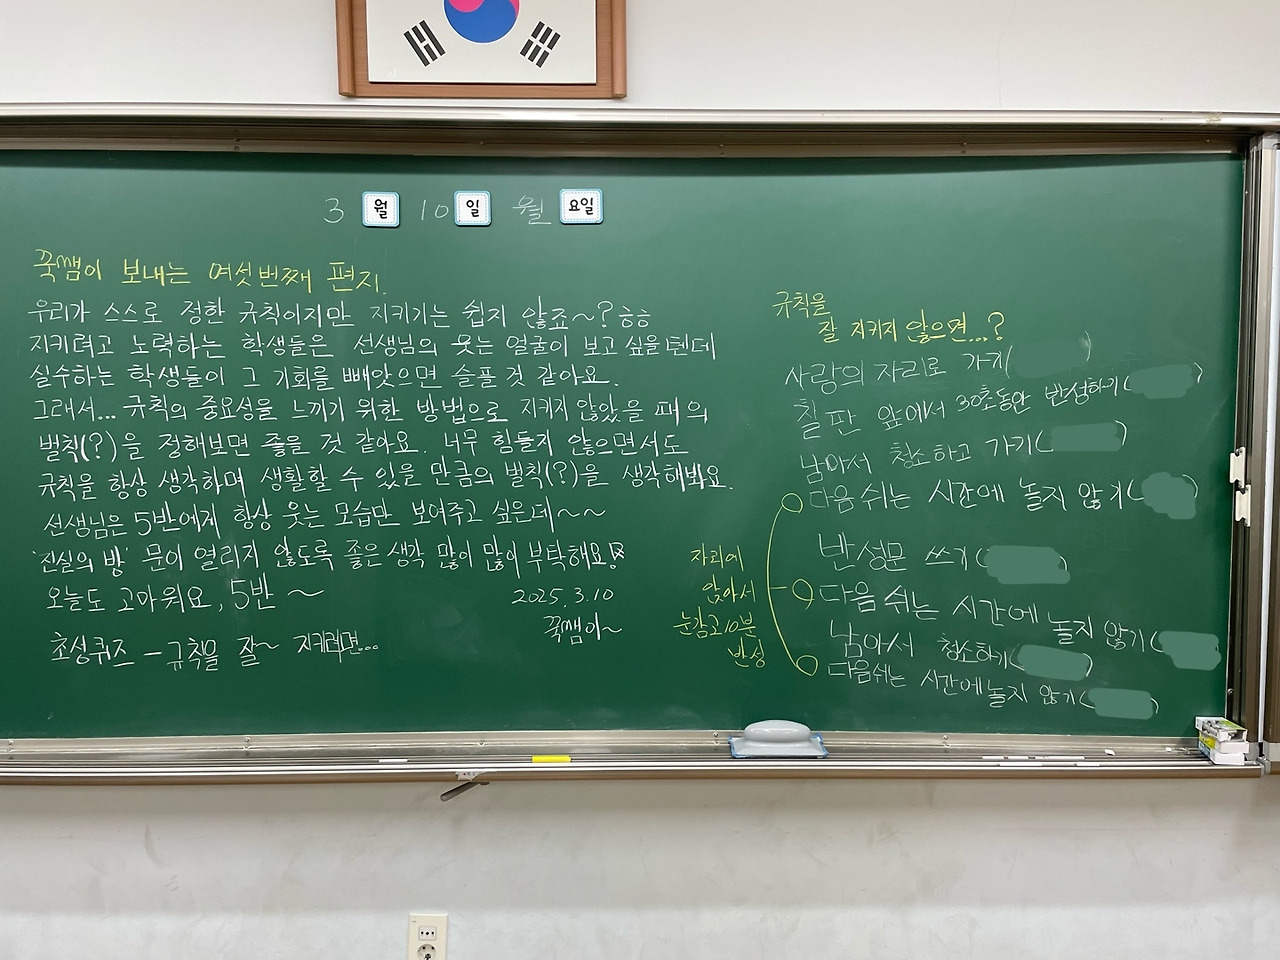 3 월 10 일 월 요일
꾹쌤이 보내는 여섯번째 편지.
우리가 스스로 정한 규칙이지만 지키기는 쉽지 않죠~? ㅎㅎ
지키려고 노력하는 학생들은 선생님의 웃는 얼굴이 보고 싶을텐데
실수하는 학생들이 그 기회를 빼앗으면 슬플 것 같아요.
그래서... 규칙의 중요성을 느끼기 위한 방법으로 지키지 않았을 때의
벌칙(?)을 정해보면 좋을 것 같아요. 너무 힘들지 않으면서도
규칙을 항상 생각하며 생활할 수 있을 만큼의 벌칙(?)을 생각해봐요.
선생님은 5반에게 항상 웃는 모습만 보여주고 싶은데~~
'진실의 방' 문이 열리지 않도록 좋은 생각 많이 많이 부탁해요!
오늘도 고마워요, 5반 ~
2025. 3. 10
꾹쌤이~
초성퀴즈 - 규칙을 잘~ 지키려면...
규칙을
잘 지키지 않으면...?
사랑의 자리로 가기( )
칠판 앞에서 30초동안 반성하기( )
남아서 청소하고 가기( )
다음 쉬는 시간에 놀지 않기( )
반성문 쓰기( )
다음 쉬는 시간에 놀지 않기( )
남아서 청소하기( )
다음쉬는 시간에 놀지 않기( )
자리에
앉아서
눈감고 10분
반성